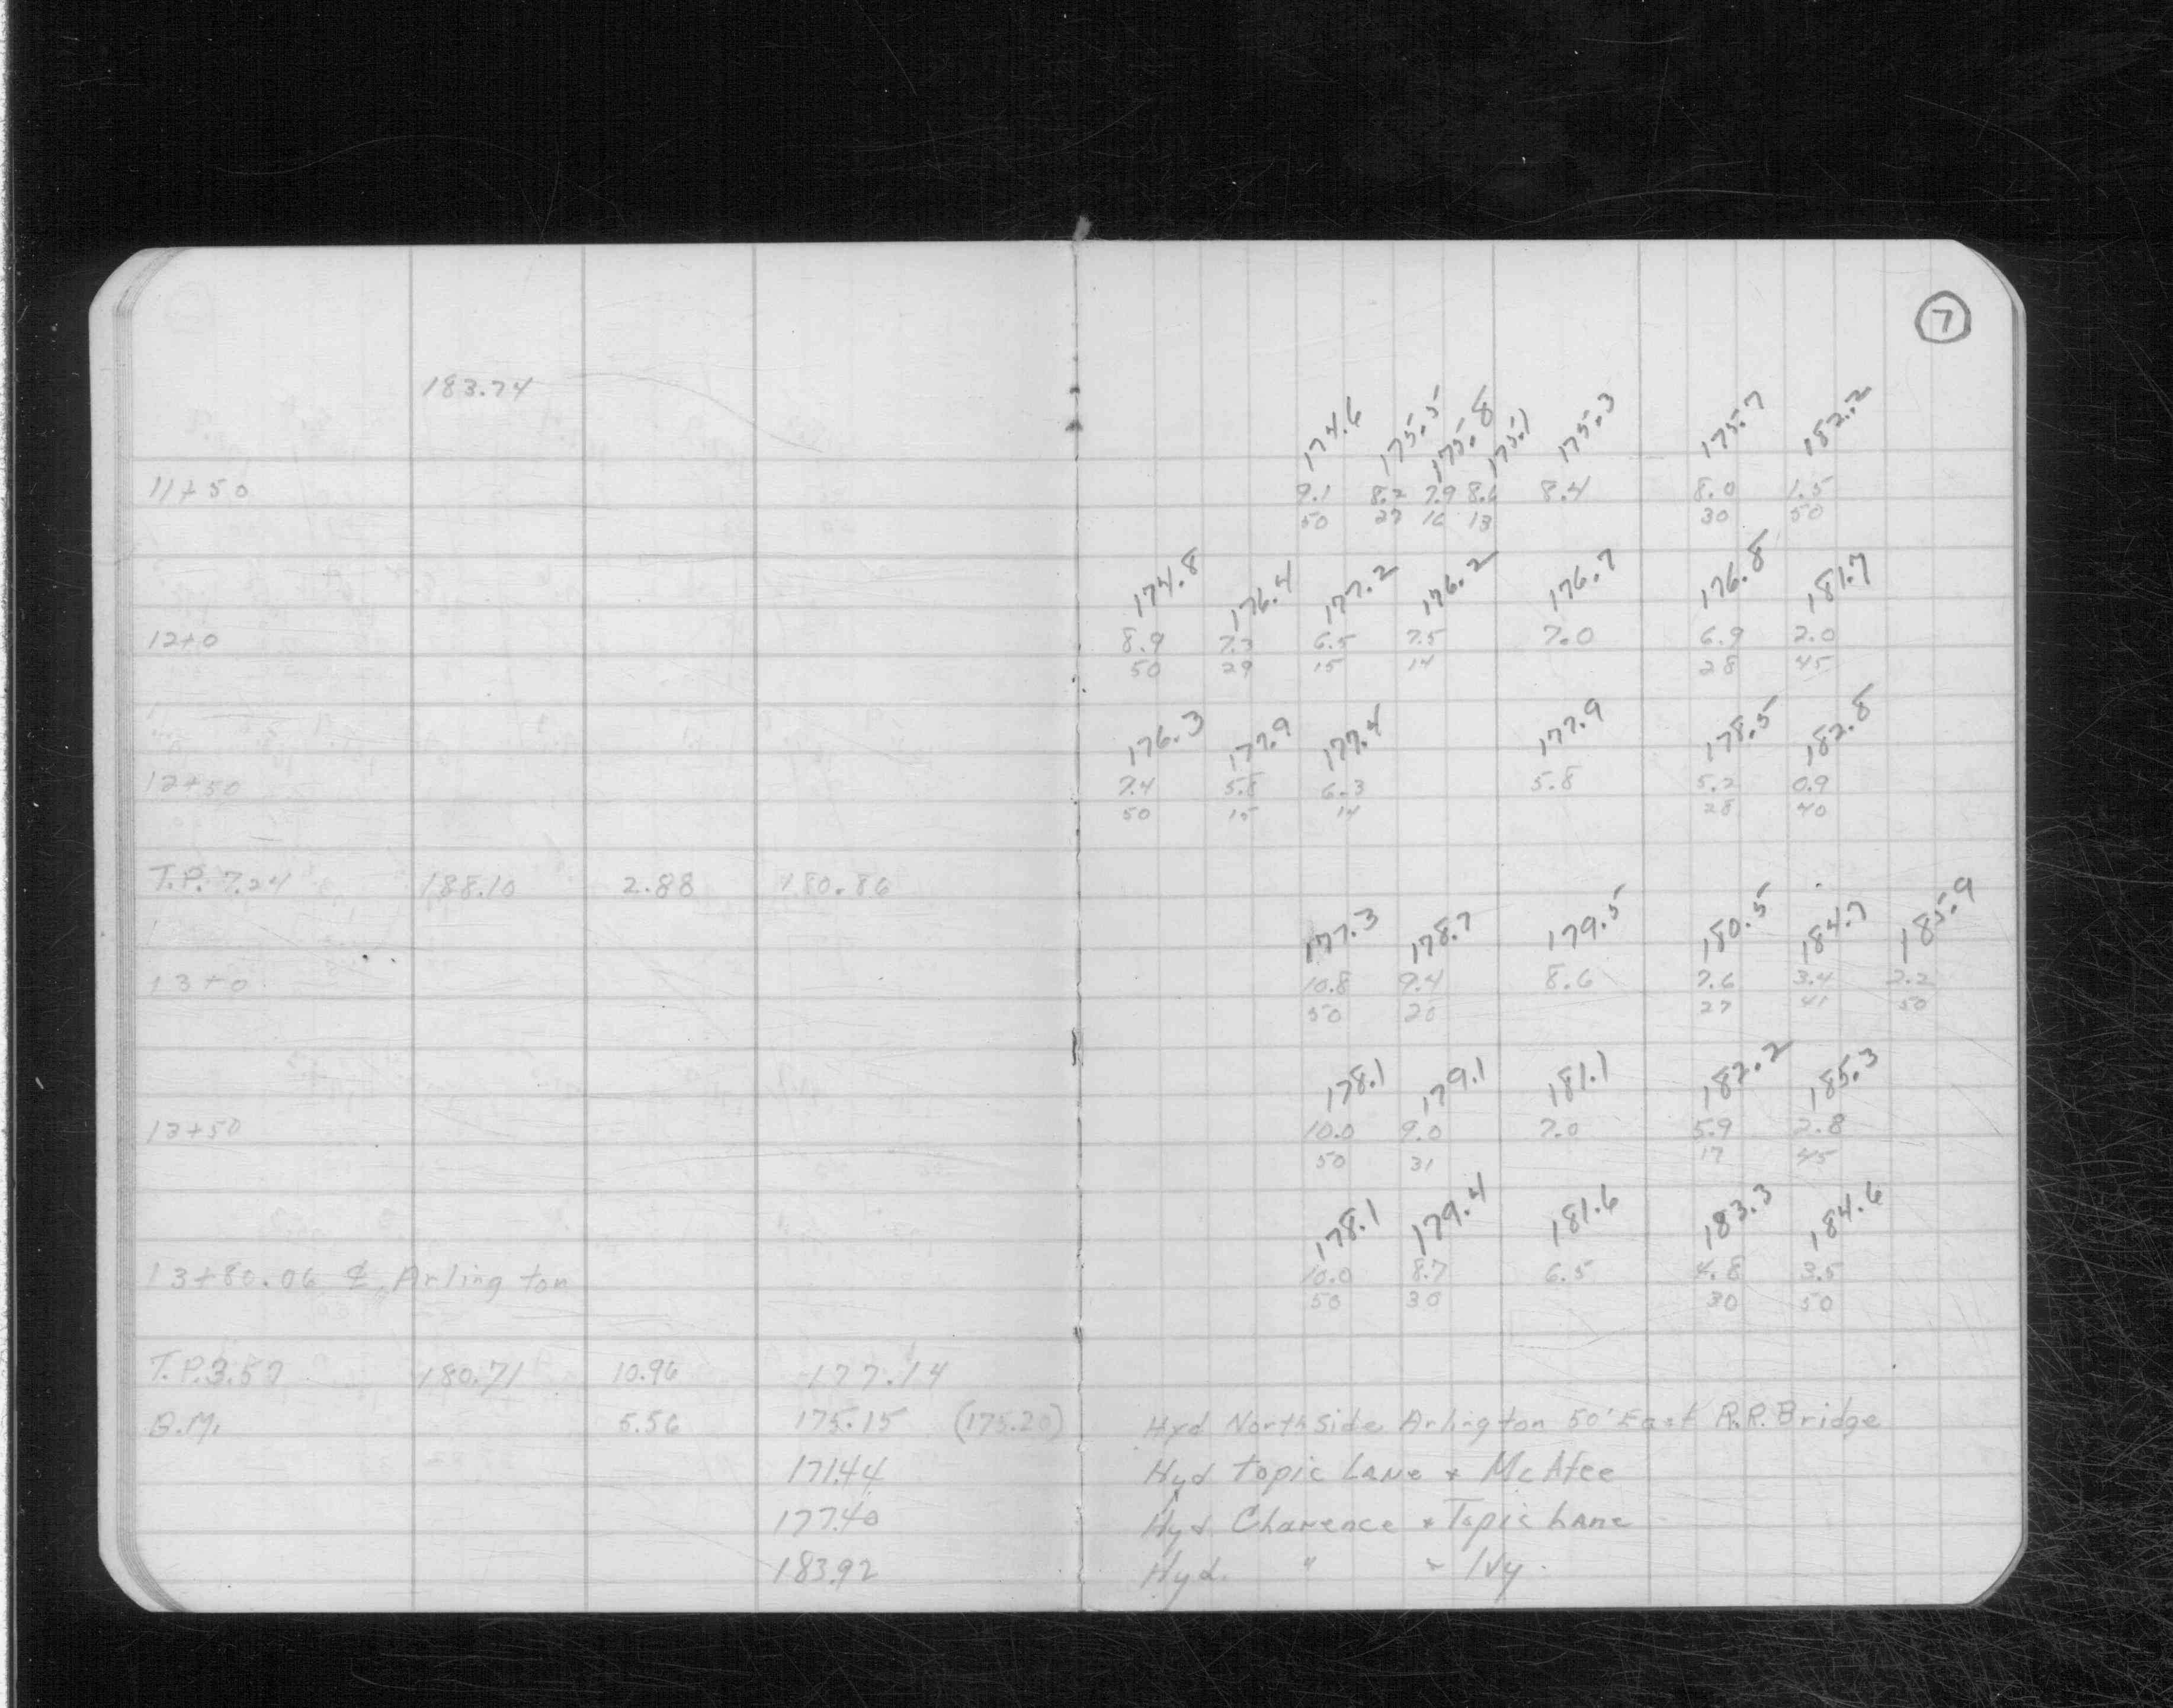 7
183.74
174.6 175.5 175.8 175.1 175.3 175.7 182.2
11+50 9.1 8.2 7.9 8.6 8.4 8.0 1.5
50 27 16 13 30 50
174.8 176.4 177.2 176.2 176.7 176.8 181.7
12+0 8.9 7.3 6.5 7.5 7.0 6.9 2.0
50 29 15 14 28 45
176.3 177.9 177.4 177.9 178.5 182.8
12+50 7.4 5.8 6.3 5.8 5.2 0.9
50 15 14 28 40
T.P. 7.24 188.10 2.88 180.86
177.3 178.7 179.5 180.5 184.7 185.9
13+0 10.8 9.4 8.6 7.6 3.4 2.2
50 20 27 41 50
178.1 179.1 181.1 182.2 185.3
13+50 10.0 9.0 7.0 5.9 2.8
50 31 17 45
178.1 179.4 181.6 183.3 184.6
13+80.06 ℄ Arlington 10.0 8.7 6.5 4.8 3.5
50 30 30 50
T.P. 3.57 180.71 10.96 177.14
B.M. 5.56 175.15 (175.20) Hyd North Side Arlington 50' East R.R. Bridge
171.44 Hyd Topic Lane + McAfee
177.40 Hyd Clarence + Topic Lane
183.92 Hyd. " " Ivy.